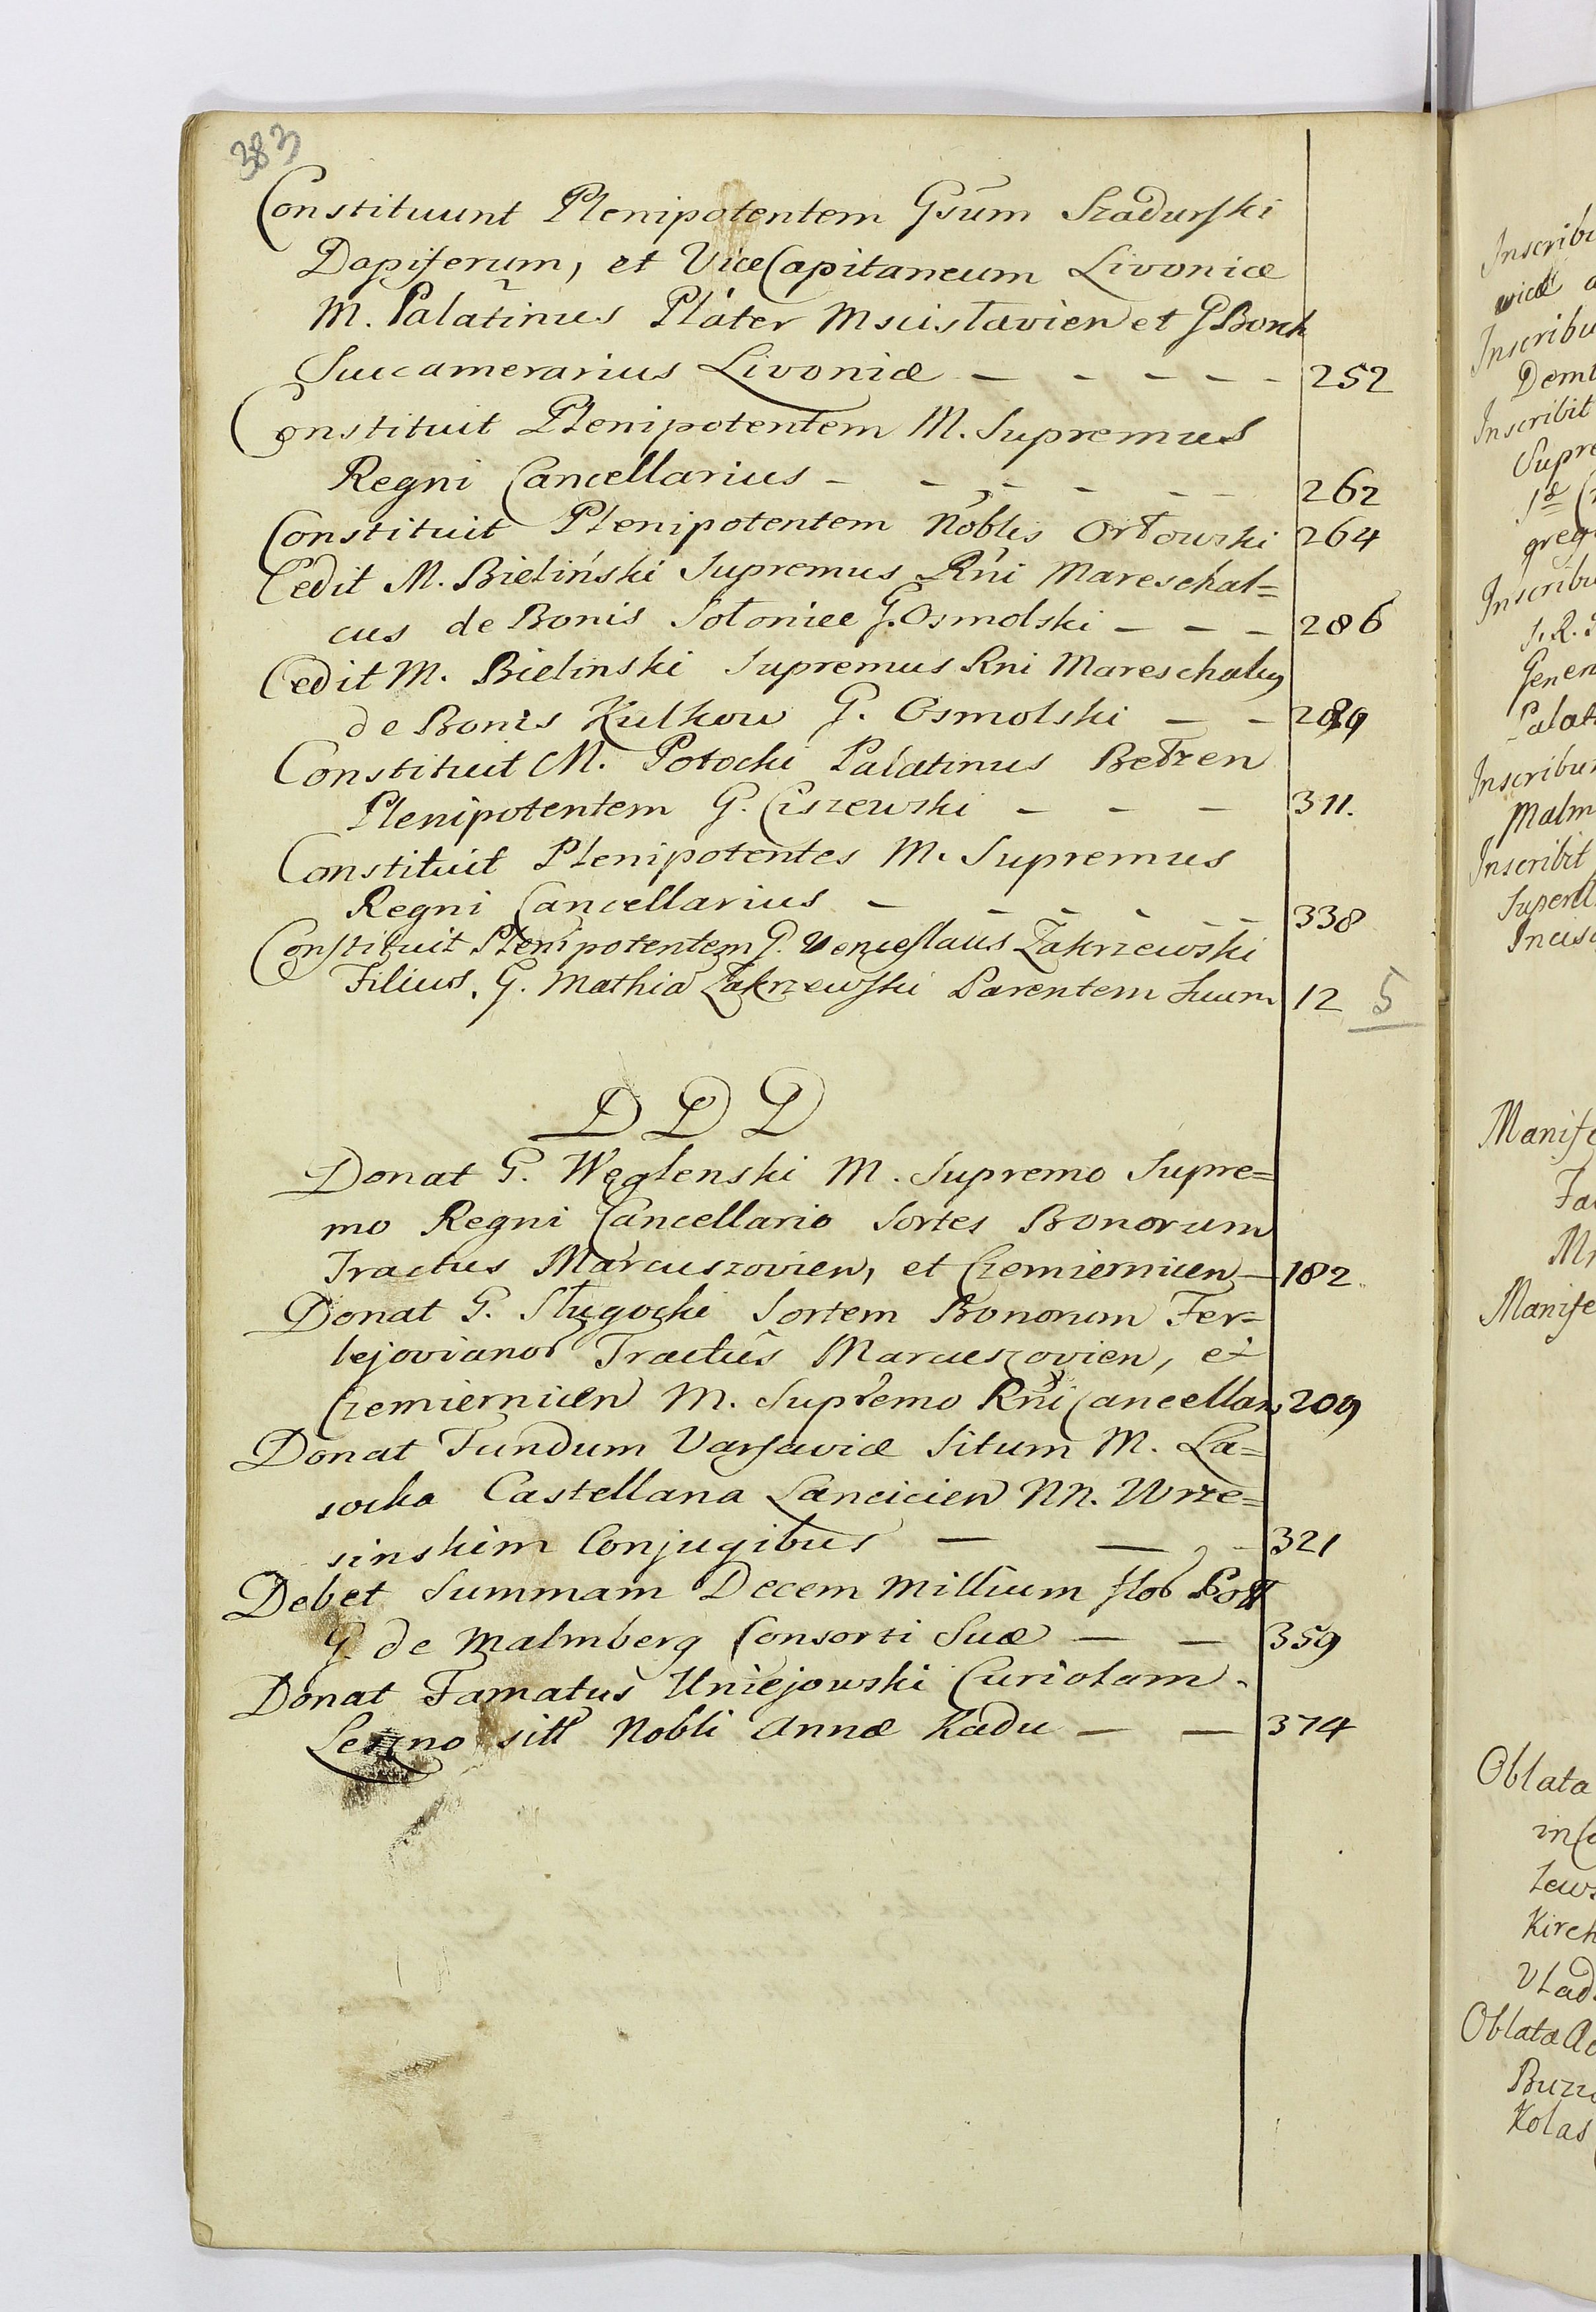 383
Constituunt Plenipotentem Gsum Szadurski
Dapiferum, et ViceCapitaneum Livoniæ
M. Palatinus Plater Mscistavien et G Borch
Succamerarius Livoniæ — - - - - 252
Constituit Plenipotentem M. Supremus
Regni Cancellarius - - - - - - 262
Constituit Plenipotentem Noblis Ortowski 264
Cedit M. Bieliński Supremus Rni Mareschal=
cus de Bonis Sotonice G. Osmolski - - - 286
Cedit M. Bielinski Supremus Rni Mareschalcus
de Bonis Kulkow G. Osmolski — - 289
Constituit M. Potocki Palatinus Bełzen
Plenipotentem G. Ciszewski - - - 311.
Constituit Plenipotentes M. Supremus
Regni Cancellarius - - - - - - 338
Constituit Plenipotentem G. Venceslaus Zakrzewski
Filius, G. Mathia Zakrzewski Parentem Suum 12 5
D D D
Donat G. Węglenski M. Supremo Supre=
mo Regni Cancellario Sortes Bonorum
Tractus Marcuszovien, et Czemiernicen — 182
Donat G. Sługocki Sortem Bonorum Fer=
lejovianor Tractus Marcuszovien, et
Czemiernicen M. Supremo Rni Cancellar 209
Donat Fundum Varsaviæ Situm M. La=
socka Castellana Lancicien NN. Wrze=
sinskim Conjugibus — — - 321
Debet Summam Decem Millium flor Poll
G. de Malmberg Consorti Suæ — — 359
Donat Famatus Uniejowski Curiolam
Leszno sitt Nobli Annæ Kadu — — 374
Inscribu
Inscribu
Inscribit
Supre
greg
Inscribu
S. R.
Gener
Palat
Inscribun
Malm
Inscribit
Manife
Manife
Oblata
Kirch
Vlad
Oblata
Kolas